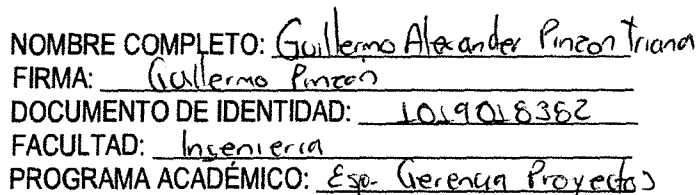 NOMBRE COMPLETO: Guillermo Alexander Pinzon Triana
FIRMA: Guillermo Pinzon
DOCUMENTO DE IDENTIDAD: 1019018382
FACULTAD: Ingenieria
PROGRAMA ACADÉMICO: Esp. Gerencia Proyectos